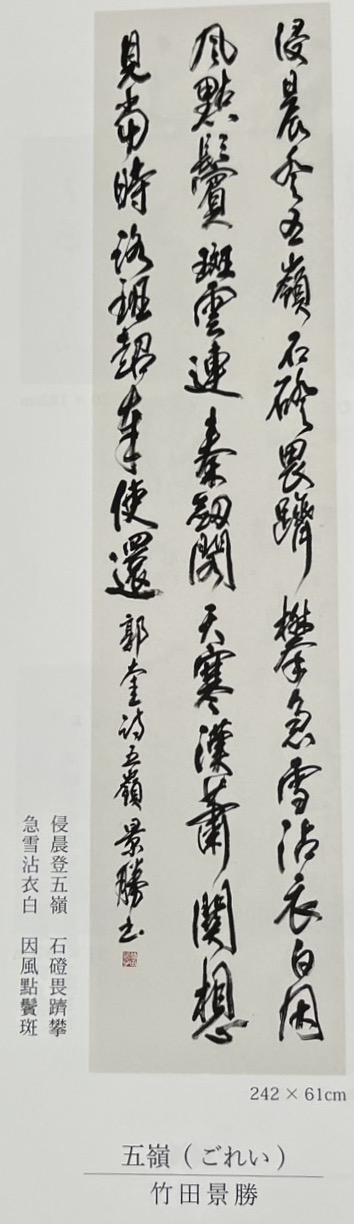 侵晨登五嶺石磴畏躋攀急雪沾衣白因
風點鬢斑雲連秦劔閣天寒漢蕭關想
見當時路班超奉使還 郭奎詩五嶺 景勝書
侵晨登五嶺 石磴畏躋攀
急雪沾衣白 因風點鬢斑
242 × 61cm
五嶺(ごれい)
竹田景勝